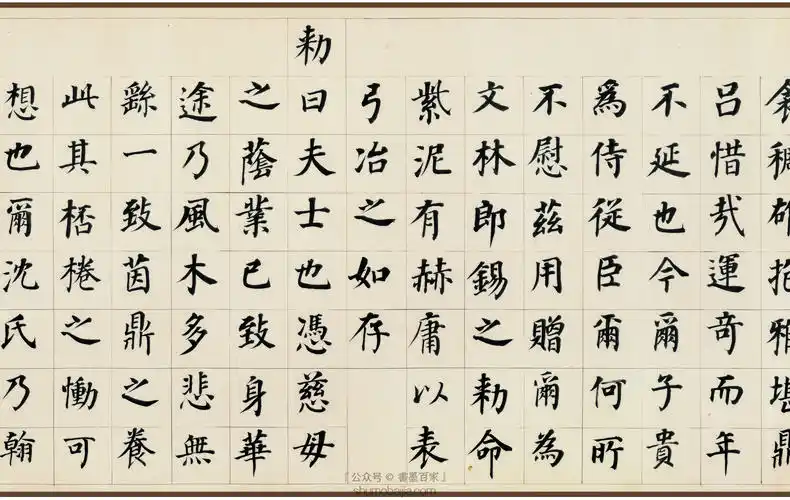 抱雅堪鼎
呂惜哉運奇而年
不延也今爾子貴
爲侍從臣爾何所
不慰茲用贈爾為
文林郎錫之勑命
紫泥有赫庸以表
弓冶之如存
勑曰夫士也憑慈母
之蔭業已致身華
途乃風木多悲無
繇一致茵鼎之養
此其桮棬之慟可
想也爾沈氏乃翰
「公众号 © 書墨百家」
shumobaijia.com